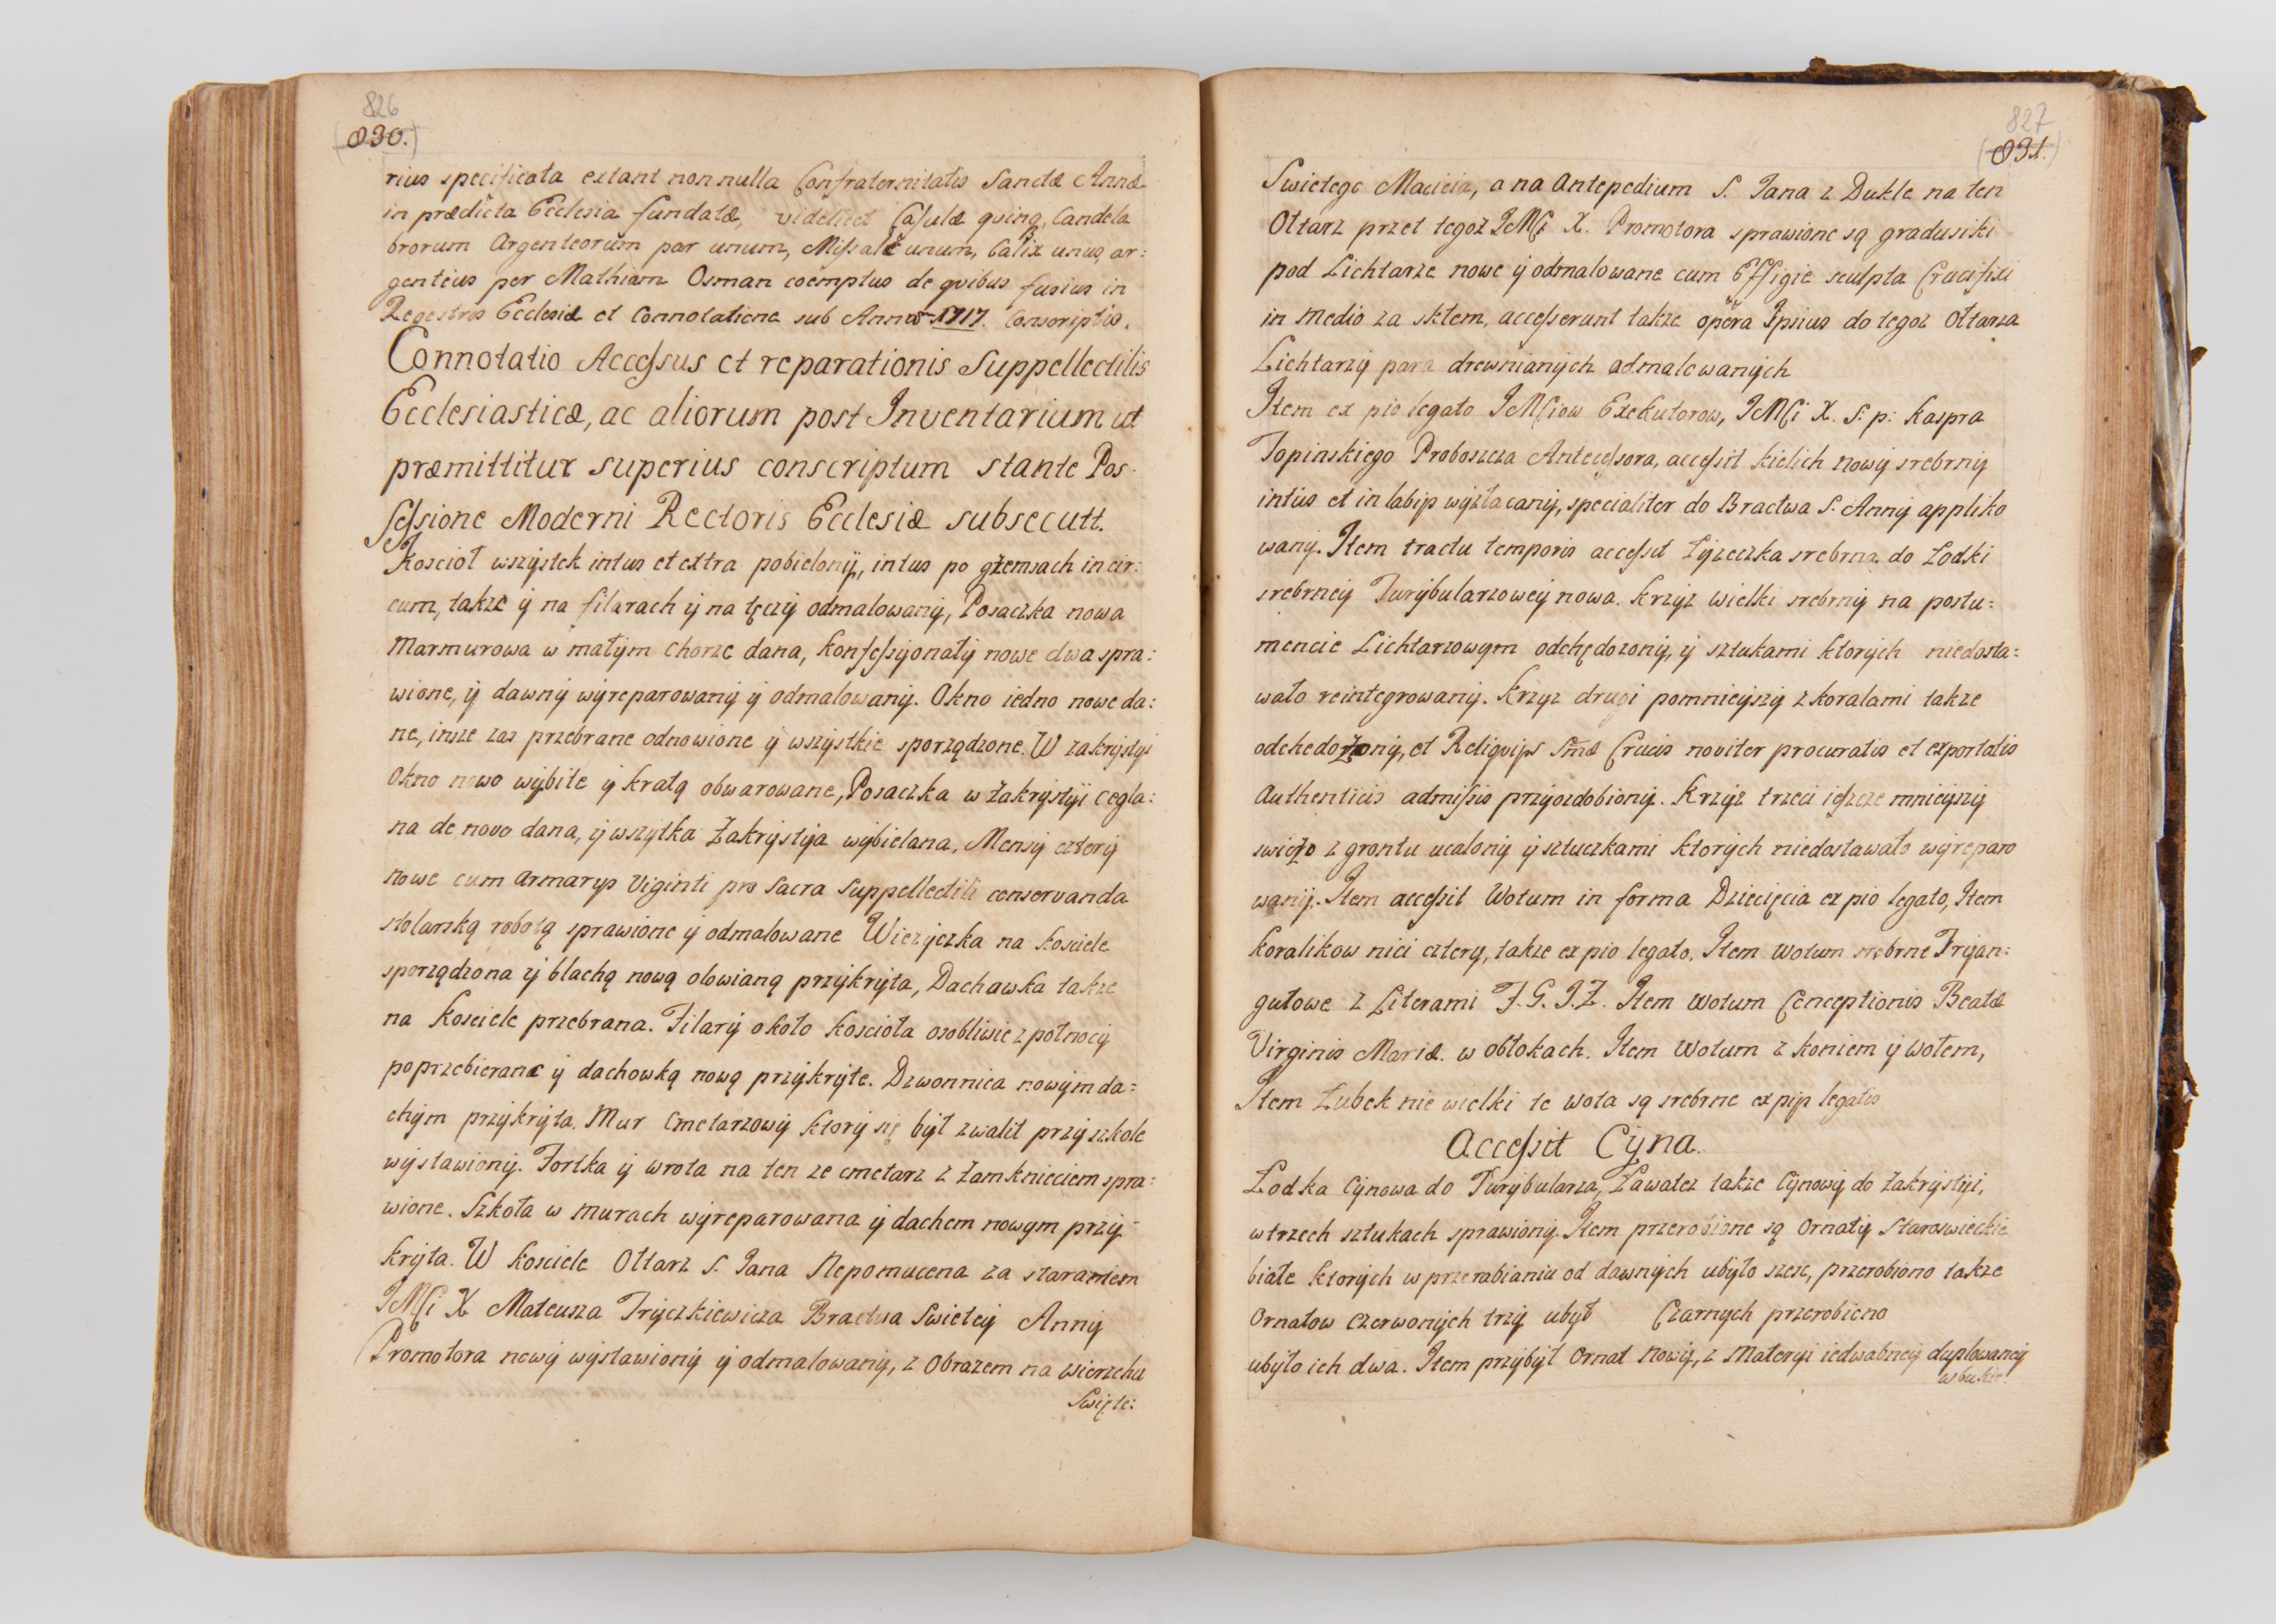 826
(830.)
rius specificata extant non nulla Confraternitatis Sanctæ Annæ
in prædicta Ecclesia fundatæ, videlicet Casulæ qving, Candela
brorum Argenteorum par unum, Missale unum, Calix unus, ar:
genteus per Mathiam Osman coëmptus de qvibus fusius in
Regestris Ecclesiæ et Connotatione sub Anno 1717. Conscriptis.
Connotatio Accessus et reparationis Suppellectilis
Ecclesiasticæ, ac aliorum post Inventarium ut
præmittitur superius conscriptum stante Pos-
sessione Moderni Rectoris Ecclesiæ subsecutt.
Koscioł wszÿstek intus et extra pobielonÿ, intus po gzemsach in cir:
cum, takze ÿ na filarach ÿ na tęczÿ odmalowanÿ, Posaczka nowa
Marmurowa w małÿm Chorze dana, Konfessÿonałÿ nowe dwa spra:
wione, ÿ dawnÿ wÿreparowanÿ ÿ odmalowanÿ. Okno iedno nowe da:
ne, insze zas przebrane odnowione ÿ wszÿstkie sporządzone. W zakrÿstÿi
Okno nowo wÿbite ÿ kratą obwarowane, Posaczka w Zakrÿstÿi cegla:
na de novo dana, ÿ wszÿtka Zakrÿstÿa wÿbielana, Mensÿ czterÿ
nowe cum Armarÿs Viginti pro Sacra Suppellectili conservanda
stolarską robotą sprawione ÿ odmalowane Wiezÿczka na kosciele
sporządzona ÿ blachą nową ołowianą przÿkrÿta, Dachawka takze
na Kosciele przebrana. Filarÿ około kościoła osobliwie z połnocÿ
poprzebierane ÿ dachowką nową przÿkrÿte. Dzwonnica nowÿm da=
chÿm przÿkrÿta. Mur Cmetarzowÿ ktorÿ się bÿł zwalił przÿ szkole
wÿstawionÿ. Fortka ÿ wrota na ten ze cmetarz z zamknieciem spra:
wione. Szkoła w murach wÿreparowana ÿ dachem nowÿm przÿ=
krÿta. W kosciele Ołtarz S. Jana Nepomucena za staraniem
JMCi X Mateusza Trÿczkiewicza Bractwa Swietey Annÿ
Promotora nowÿ wÿstawionÿ ÿ odmalowanÿ, z Obrazem na wierzchu
Swięte:
827
(831.)
Swietego Macieia, a na Antepedium S. Jana z Dukle na ten
Ołtarz przet tegoż JMCi X. Promotora sprawione są gradusiki
pod Lichtarze nowe ÿ odmalowane cum Effigie sculpta Crucifixi
in Medio za skłem, accesserunt takze opera Ipsius do tegoz Ołtarza
Lichtarzÿ para drewnianÿch odmalowanÿch
Item ex pio legato JMCiow Exekutorow, JMCi X. S. p. Kaspra
Topinskiego Proboszcza Antecessora, accessit kielich nowÿ srebrnÿ
intus et in labÿs wÿzłacanÿ, specialiter do Bractwa S. Annÿ appliko
wanÿ. Item tractu temporis accessit Łÿzeczka srebrna do Łodki
srebrneÿ Turÿbularzoweÿ nowa. Krzÿz wielki srebrnÿ na postu=
mencie Lichtarzowym odchędozonÿ, ÿ sztukami ktorÿch niedosta=
wało reintegrowanÿ. Krzÿz drugi pomnieÿszÿ z koralami takze
odchedożonÿ, et Reliqvÿs Smæ Crucis noviter procuratis et exportatis
Authenticis admissis przÿozdobionÿ. Krzÿż trzeci ieszcze mnieÿszÿ
swiezo z grontu ucalonÿ ÿ sztuczkami ktorÿch niedostawało wÿreparo
wanÿ. Item accessit Wotum in forma Dziecięcia ex pio legato, Item
Koralikow nici czterÿ, takze ex pio legato. Item Wotum srebrne Trÿan:
gułowe z Literami F. G. J. Z. Item Wotum Conceptionis Beatæ
Virginis Mariæ. w obłokach. Item Wotum z koniem ÿ wołem,
Item Ząbek nie wielki te wota są srebrne ex pÿs legatis
Accessit Cÿna.
Łodka Cÿnowa do Turÿbularza, Ławatez takze Cÿnowÿ do Zakrÿstÿi,
w trzech sztukach sprawionÿ. Item przerobione są Ornatÿ Staroswieckie
białe ktorÿch w przerabianiu od dawnÿch ubÿło szesc, przerobiono takze
Ornatow czerwonÿch trzÿ ubÿł Czarnych przerobieno
ubÿło ich dwa. Item przÿbÿł Ornat Nowÿ, z Materÿi iedwabneÿ duplowaneÿ
w bukie: